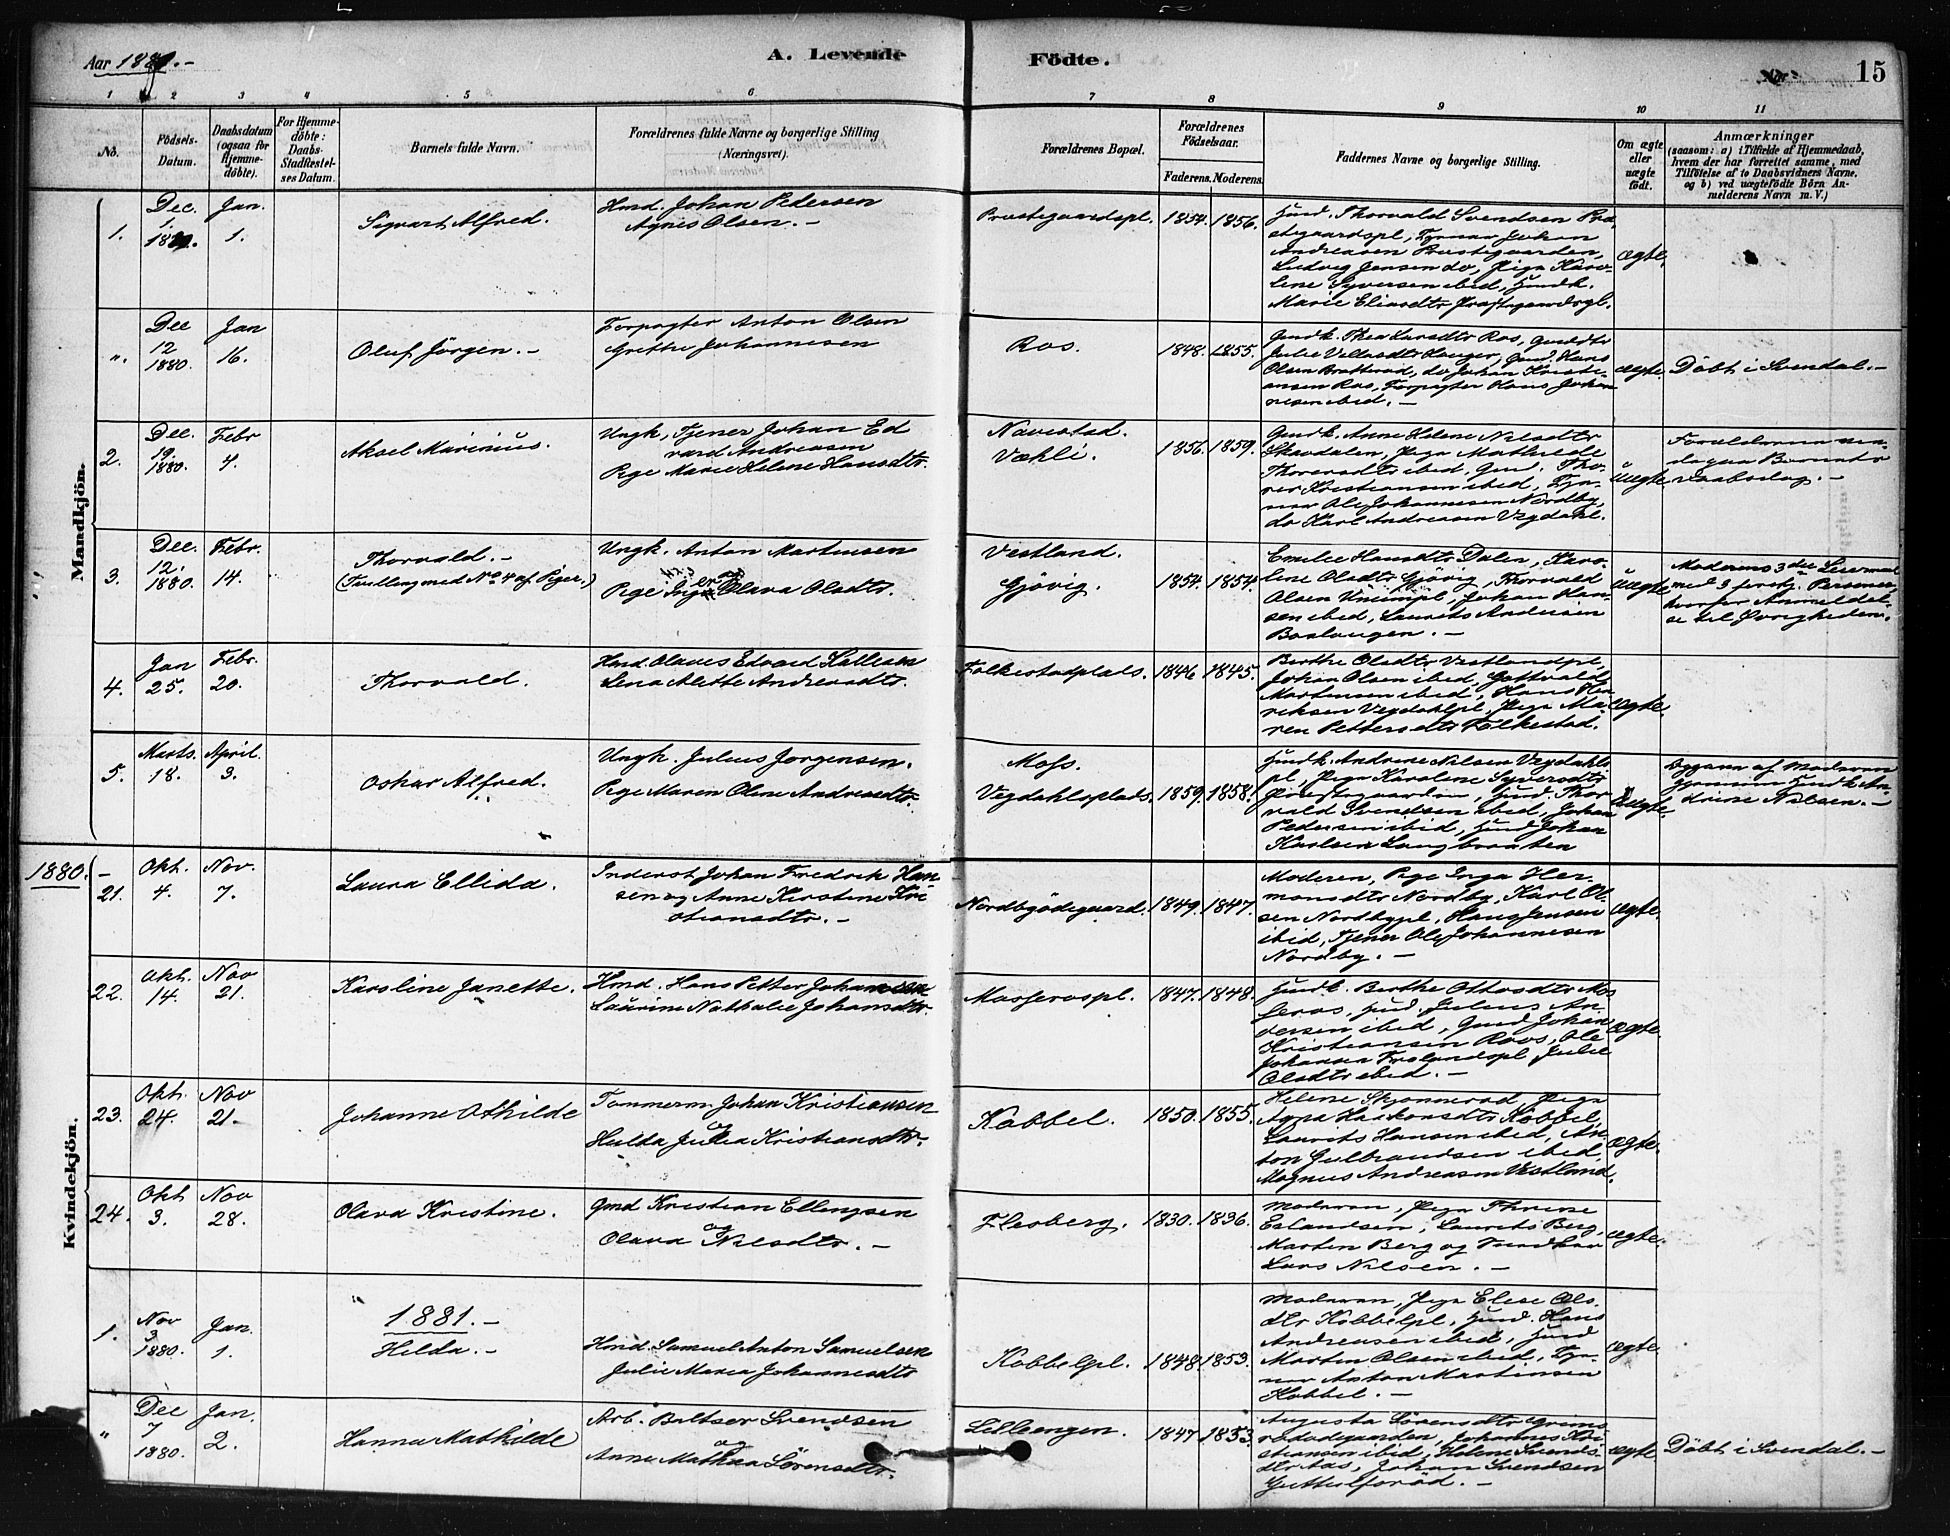 Aar 1881.-
A. Levende
Födte.
15
1 2 3 4 5 6 7 8 9 10 11
No.
Födsels-
Datum.
Daabsdatum
(ogsaa for
Hjemme-
döbte).
For Hjemme-
döbte:
Daabs-
Stadfæstel-
ses Datum.
Barnets fulde Navn.
Forældrenes fulde Navne og borgerlige Stilling
(Næringsvei).
Forældrenes Bopæl.
Forældrenes
Födselsaar.
Faderens. Moderens.
Faddernes Navne og borgerlige Stilling.
Om ægte
eller
uægte
födt.
Anmærkninger
(saasom: a) i Tilfælde af Hjemmedaab,
hvem der har forrettet samme, med
Tilföielse af to Daabsvidners Navne.
og b) ved uægtefödte Börn An-
melderens Navn m. V.)
Mandkjön.
1.
Dec.
1.
1880.
Jan.
1.
Sigvart Alfred.
Hmd. Johan Pedersen
Agnes Olsen. -
Prestegaardspl.
1854. 1856.
Hmd. Thorvald Svendsen Præ-
stegaardspl, Tjener Johan
Andreasen Prestegaarden,
Ludvig Jensen do, Pige Karo-
line Syversen ibid, Hmdk.
Marie Eliasdtr Præstegaardspl.
ægte.
".
Dec
12
1880.
Jan
16.
Oluf Jörgen. -
Forpagter Anton Olsen
Grethe Johannesen
Ros.
1848. 1855.
Gmdk. Thea Larsdtr Ros, Gmddtr
Julie Hauger, Gmd. Hans
Olsen Bratterød, do Johan Kristi-
ansen Ros, Forpagter Hans Johan-
nesen ibid. -
ægte.
Döbt i Svendal. -
2.
Dec.
19.
1880.
Febr
4.
Aksel Marinius.
Ungk, Tjener Johan Ed
vard Andreasen
Pge Marie Helene Hansdtr.
Navestad.
Vækli.
1856. 1859.
Gmdk. Anne Helene Nilsdtr
Skavdalen, Pige Mathilde
Thoresdtr ibid, Gmd. Tho-
rer Kristiansen ibid, Tje-
ner Ole Johannesen Nordby,
do Karl Andreasen Vegdahl.
uægte
3.
Dec.
12.
1880.
Febr.
14.
Thorvald. -
(Tvilling med No 4 af Piger.)
Ungk. Anton Martinsen
Pge Olava Olsdtr.
Vestland.
Gjövig.
1854. 1854.
Emilie Hansdtr Dalen, Karo-
line Olsdtr Gjövig, Thorvald
Olsen, Johan Han-
sen ibid, Laurits Andersen
Boslangen. -
uægte
Moderens 3die Leiermaal
med 3 forskj. Personer,
hvorfor Anmeldel-
se til Øvrigheden.
4.
Jan
25.
Febr.
20.
Thorvald.
Hmd. Olaves Edvard Kallesen
Lena Alette Andreasdtr.
Folkestadplads.
1846 1845.
Berthe Olsdtr Vestlandpl,
Johan Olsen ibid, Gottvald
Martensen ibid, Hans Hen-
riksen Vegdahlpl, Pige Ma-
ren Pettersdtr Folkestad.
ægte.
5.
Marts.
18.
April.
3.
Oskar Alfred.
Ungk. Julius Jorgensen.
Pge Maren Oline Andreasdtr.
Moss.
Vegdahlsplads.
1859. 1858.
Hmdk. Andrine Nilsen Vegdahls-
pl, Pige Karoline Syversdtr
Prestegaarden, Hmd. Thor-
vald Svendsen ibid, Johan
Pedersen ibid, Hmd Johan
Karlsen Langbraaten
uægte.
Opgivn af Moderen
gjennem Hmdk An-
drine Nilsen. -
Kvindekjön.
1880. -
21.
Okt.
4.
Nov.
7.
Laura Ellida.
Inderst Johan Fredrik Han
sen og Anne Kirstine Kri
stiansdtr. -
Nordbyödegaard.
1849. 1847.
Moderen, Pge Inga Her-
mansdtr Nordby, Karl Ol-
sen Nordbypl, Hans Jensen
ibid, Tjener Ole Johannesen
Nordby. -
ægte.
22.
Okt.
14.
Nov
21.
Karoline Janette.
Hmd. Hans Petter Johansen
Laurine Nathalie Johansdtr.
Mosserospl.
1847. 1848.
Hmdk. Berthe Ottosdtr Mos
seros, Hmd. Julius An-
dersen ibid, Gmd Johan
Kristiansen Roos, Ole
Johansen Froslandspl, Julie
Olsdtr ibid. -
ægte.
23.
Okt.
24.
Nov
21.
Johanne Othilde
Tömmerm. Johan Kristiansen
og
Hulda Julia Kristiansdtr. -
Kobbel.
1850. 1855.
Helene Skjønnerød, Pige
Agna Haakonsdtr Kobbel,
Laurits Hansen ibid, An-
ton Gulbrandsen ibid,
Magnus Andreasen Vestland.
ægte.
24.
Okt
3.
Nov
28.
Olava Kristine.
Gmd Kristian Ellingsen
og
Olava Nilsdtr. -
Flesberg.
1830. 1836.
Moderen, Pige Thrine
Eslandsen, Laurits Berg,
Marten Berg og
Lars Nilsen. -
ægte.
1881. -
1.
Nov
3
1880.
Jan.
1.
Hilda. -
Hmd. Samuel Anton Samuelsen
Julie Maren Johannesdtr
Kobbelpl.
1848. 1853.
Moderen, Pige Elise Ols-
dtr Kobbelpl, Hmd. Hans
Andreasen ibid, Hmd
Marten Olsen ibid, Tje-
ner Anton Martinsen
Kobbel. -
ægte.
"
Dec
7
1880.
Jan.
2.
Hanna Mathilde
Arb. Baltser Svendsen
og
Anne Mathea Sörensdtr.
Lilleengen.
1847 1853.
Augusta Sörensdtr
Johannes Kri-
stiansen ibid, Helene Svends-
dtr Aas, Johan Svendsen
ægte
Döbt i Svendal. -